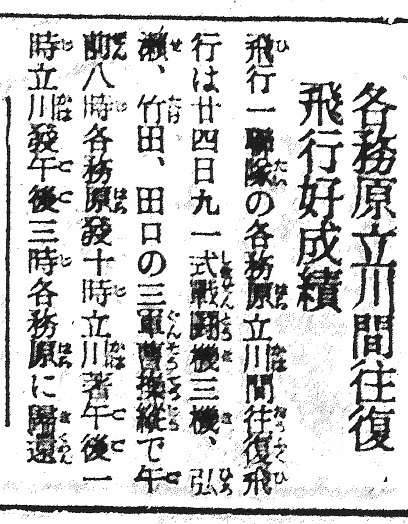 各務原立川間往復
飛行好成績
飛行一聯隊の各務原立川間往復飛
行は廿四日九一式戰鬪機三機、弘
瀬、竹田、田口の三軍曹操縱で午
前八時各務原發十時立川著午後一
時立川發午後三時各務原に歸還